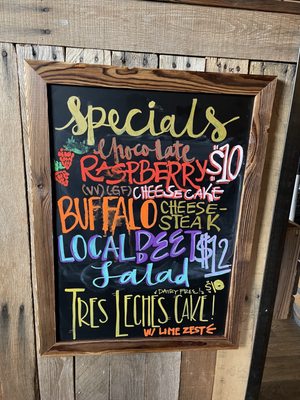 Specials
Chocolate
RASPBERRY $10
(VV) (GF) CHEESECAKE
BUFFALO CHEESE-
STEAK
LOCAL BEET $12
Salad
(DAIRY FREE!)
TRES LECHES CAKE! $10
W/ LIME ZEST